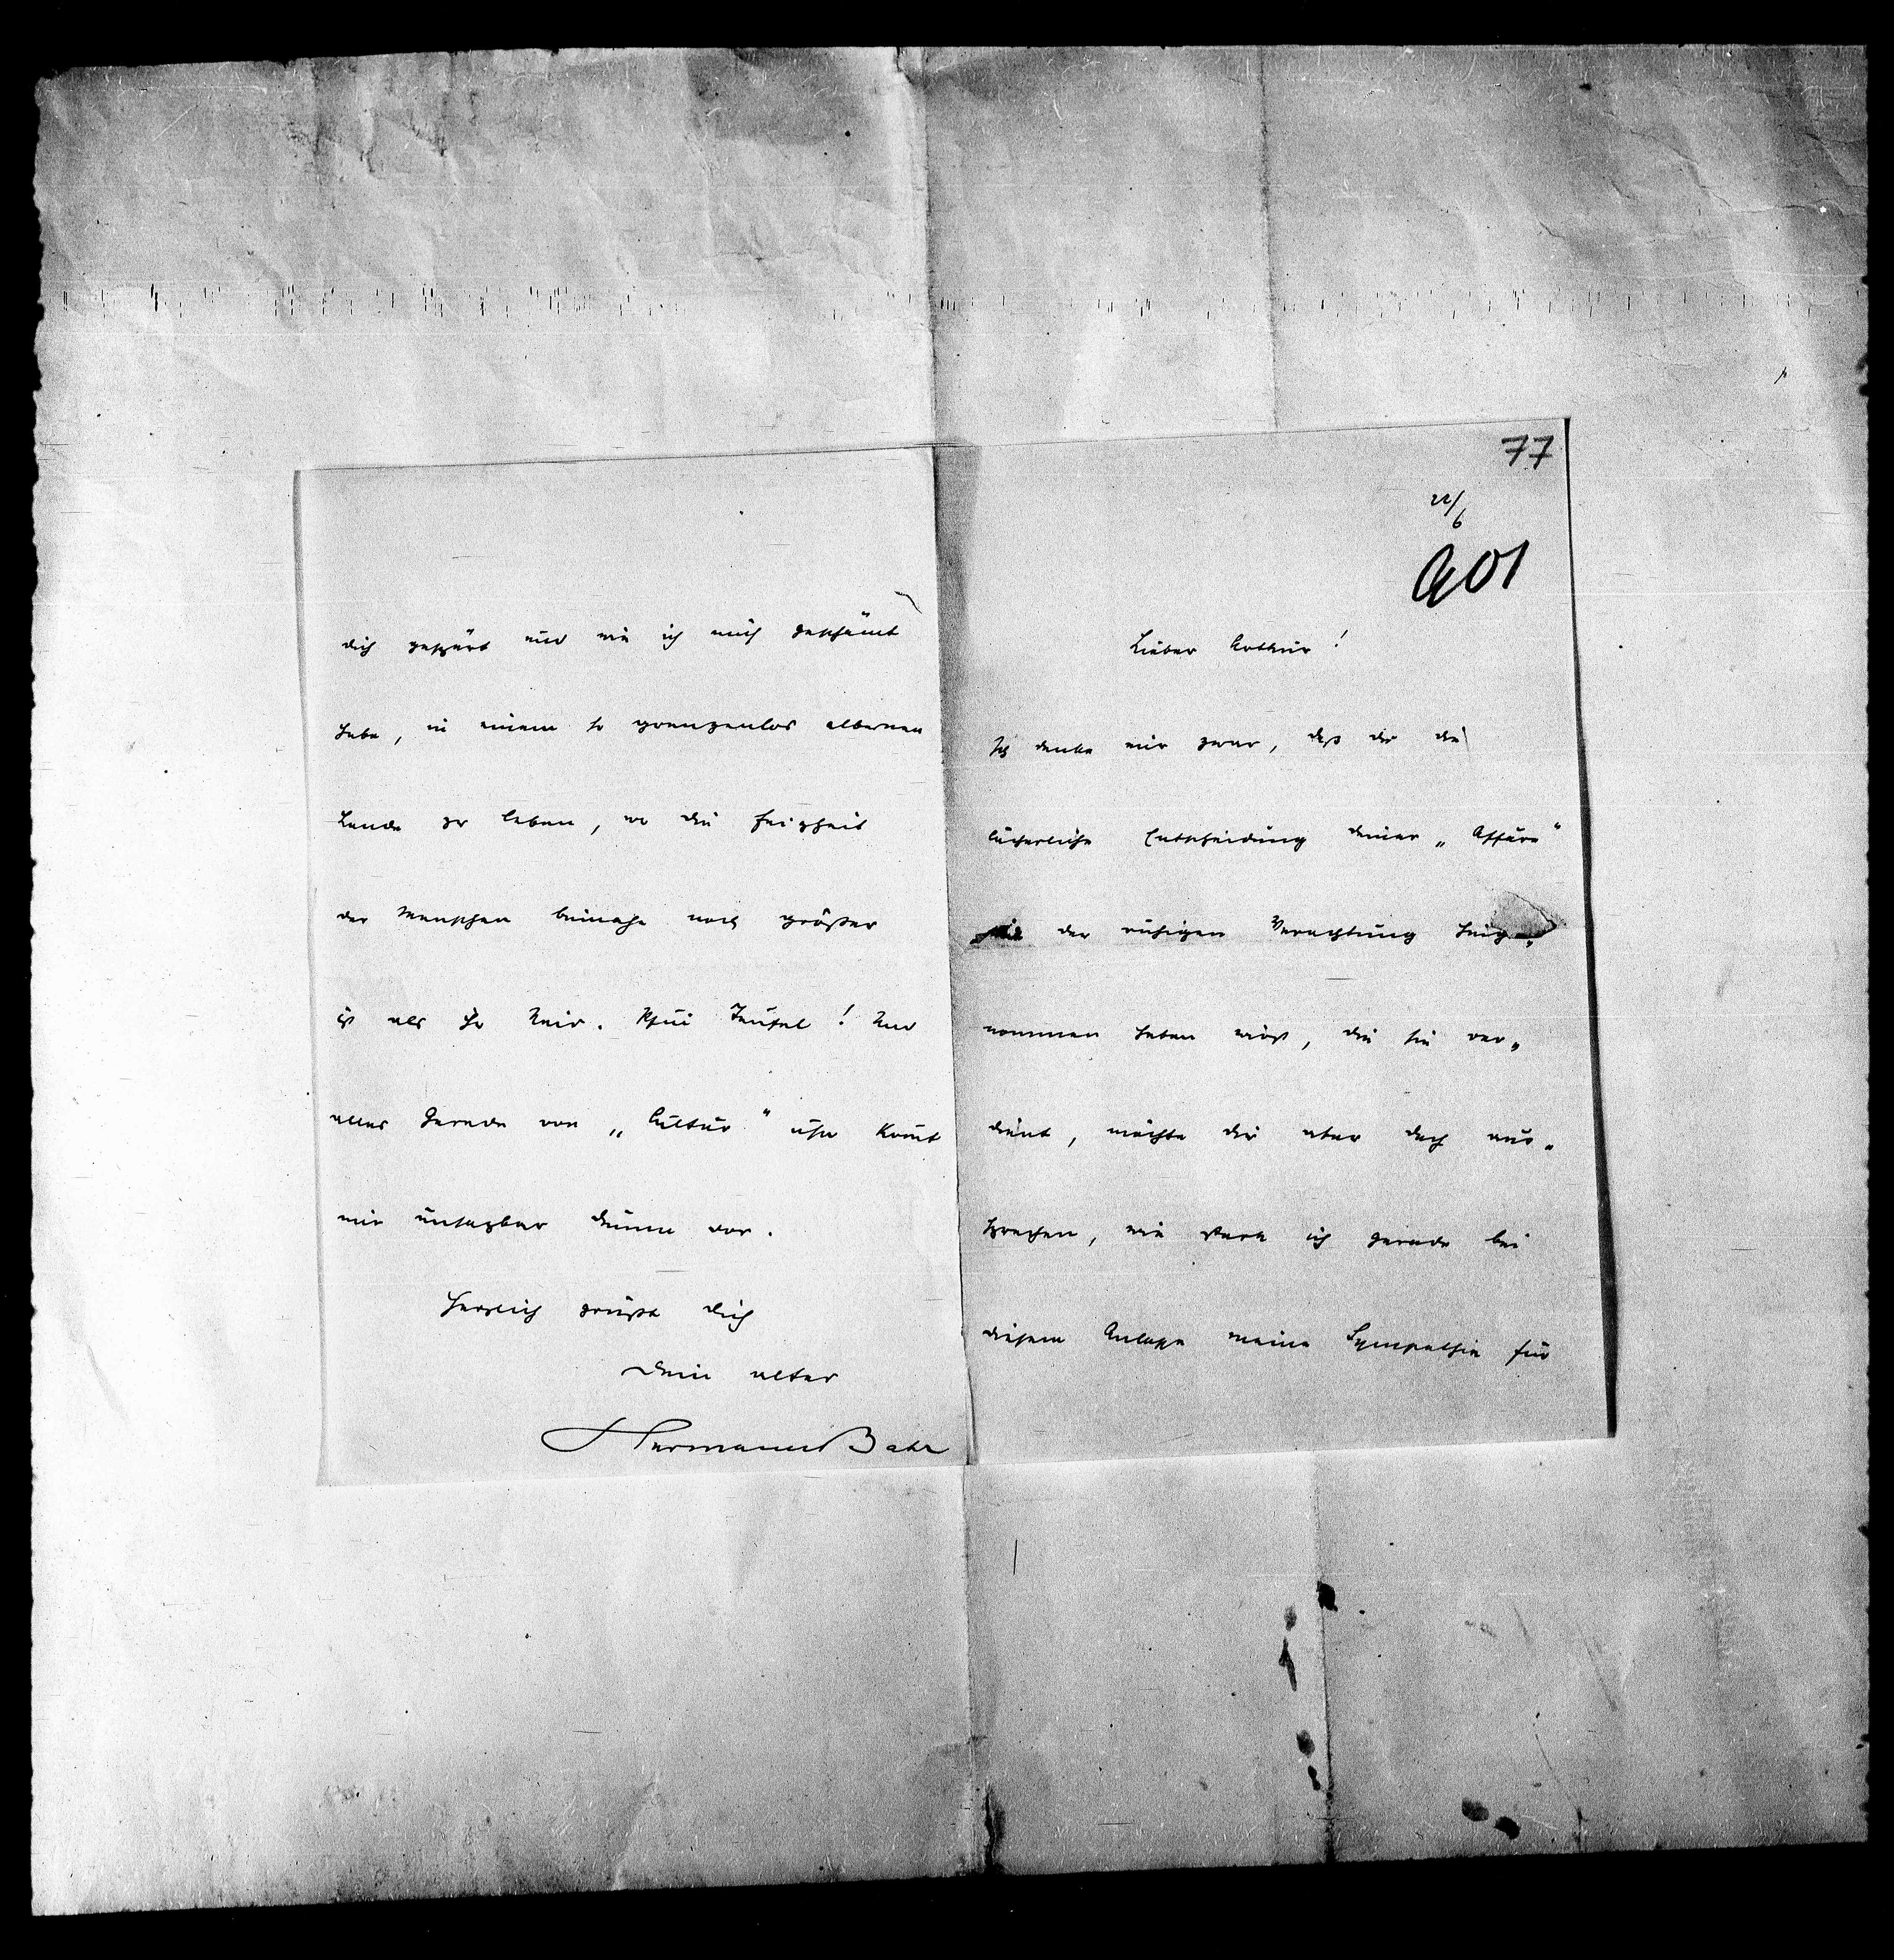 77
22/6
901
Lieber Arthur!
Ich denke mir zwar, daß du die
lächerliche Entscheidung deiner „Affäre“
mit der ruhigen Verachtung hinge„
nommen haben wirst, die sie ver„
dient, möchte dir aber doch aus„
sprechen, wie stark ich gerade bei
diesem Anlasse meine Sympathie für
dich gespürt und wie ich mich geschämt
habe, in einem so grenzenlos albernen
Lande zu leben, wo die Feigheit
der Menschen beinahe noch größer
ist als ihr Neid. Pfui Teufel! Und
alles Gerede von „Cultur“ usw kom̄t
mir unsagbar dumm vor.
Herzlich grüßt dich
Dein alter
Hermann Bahr